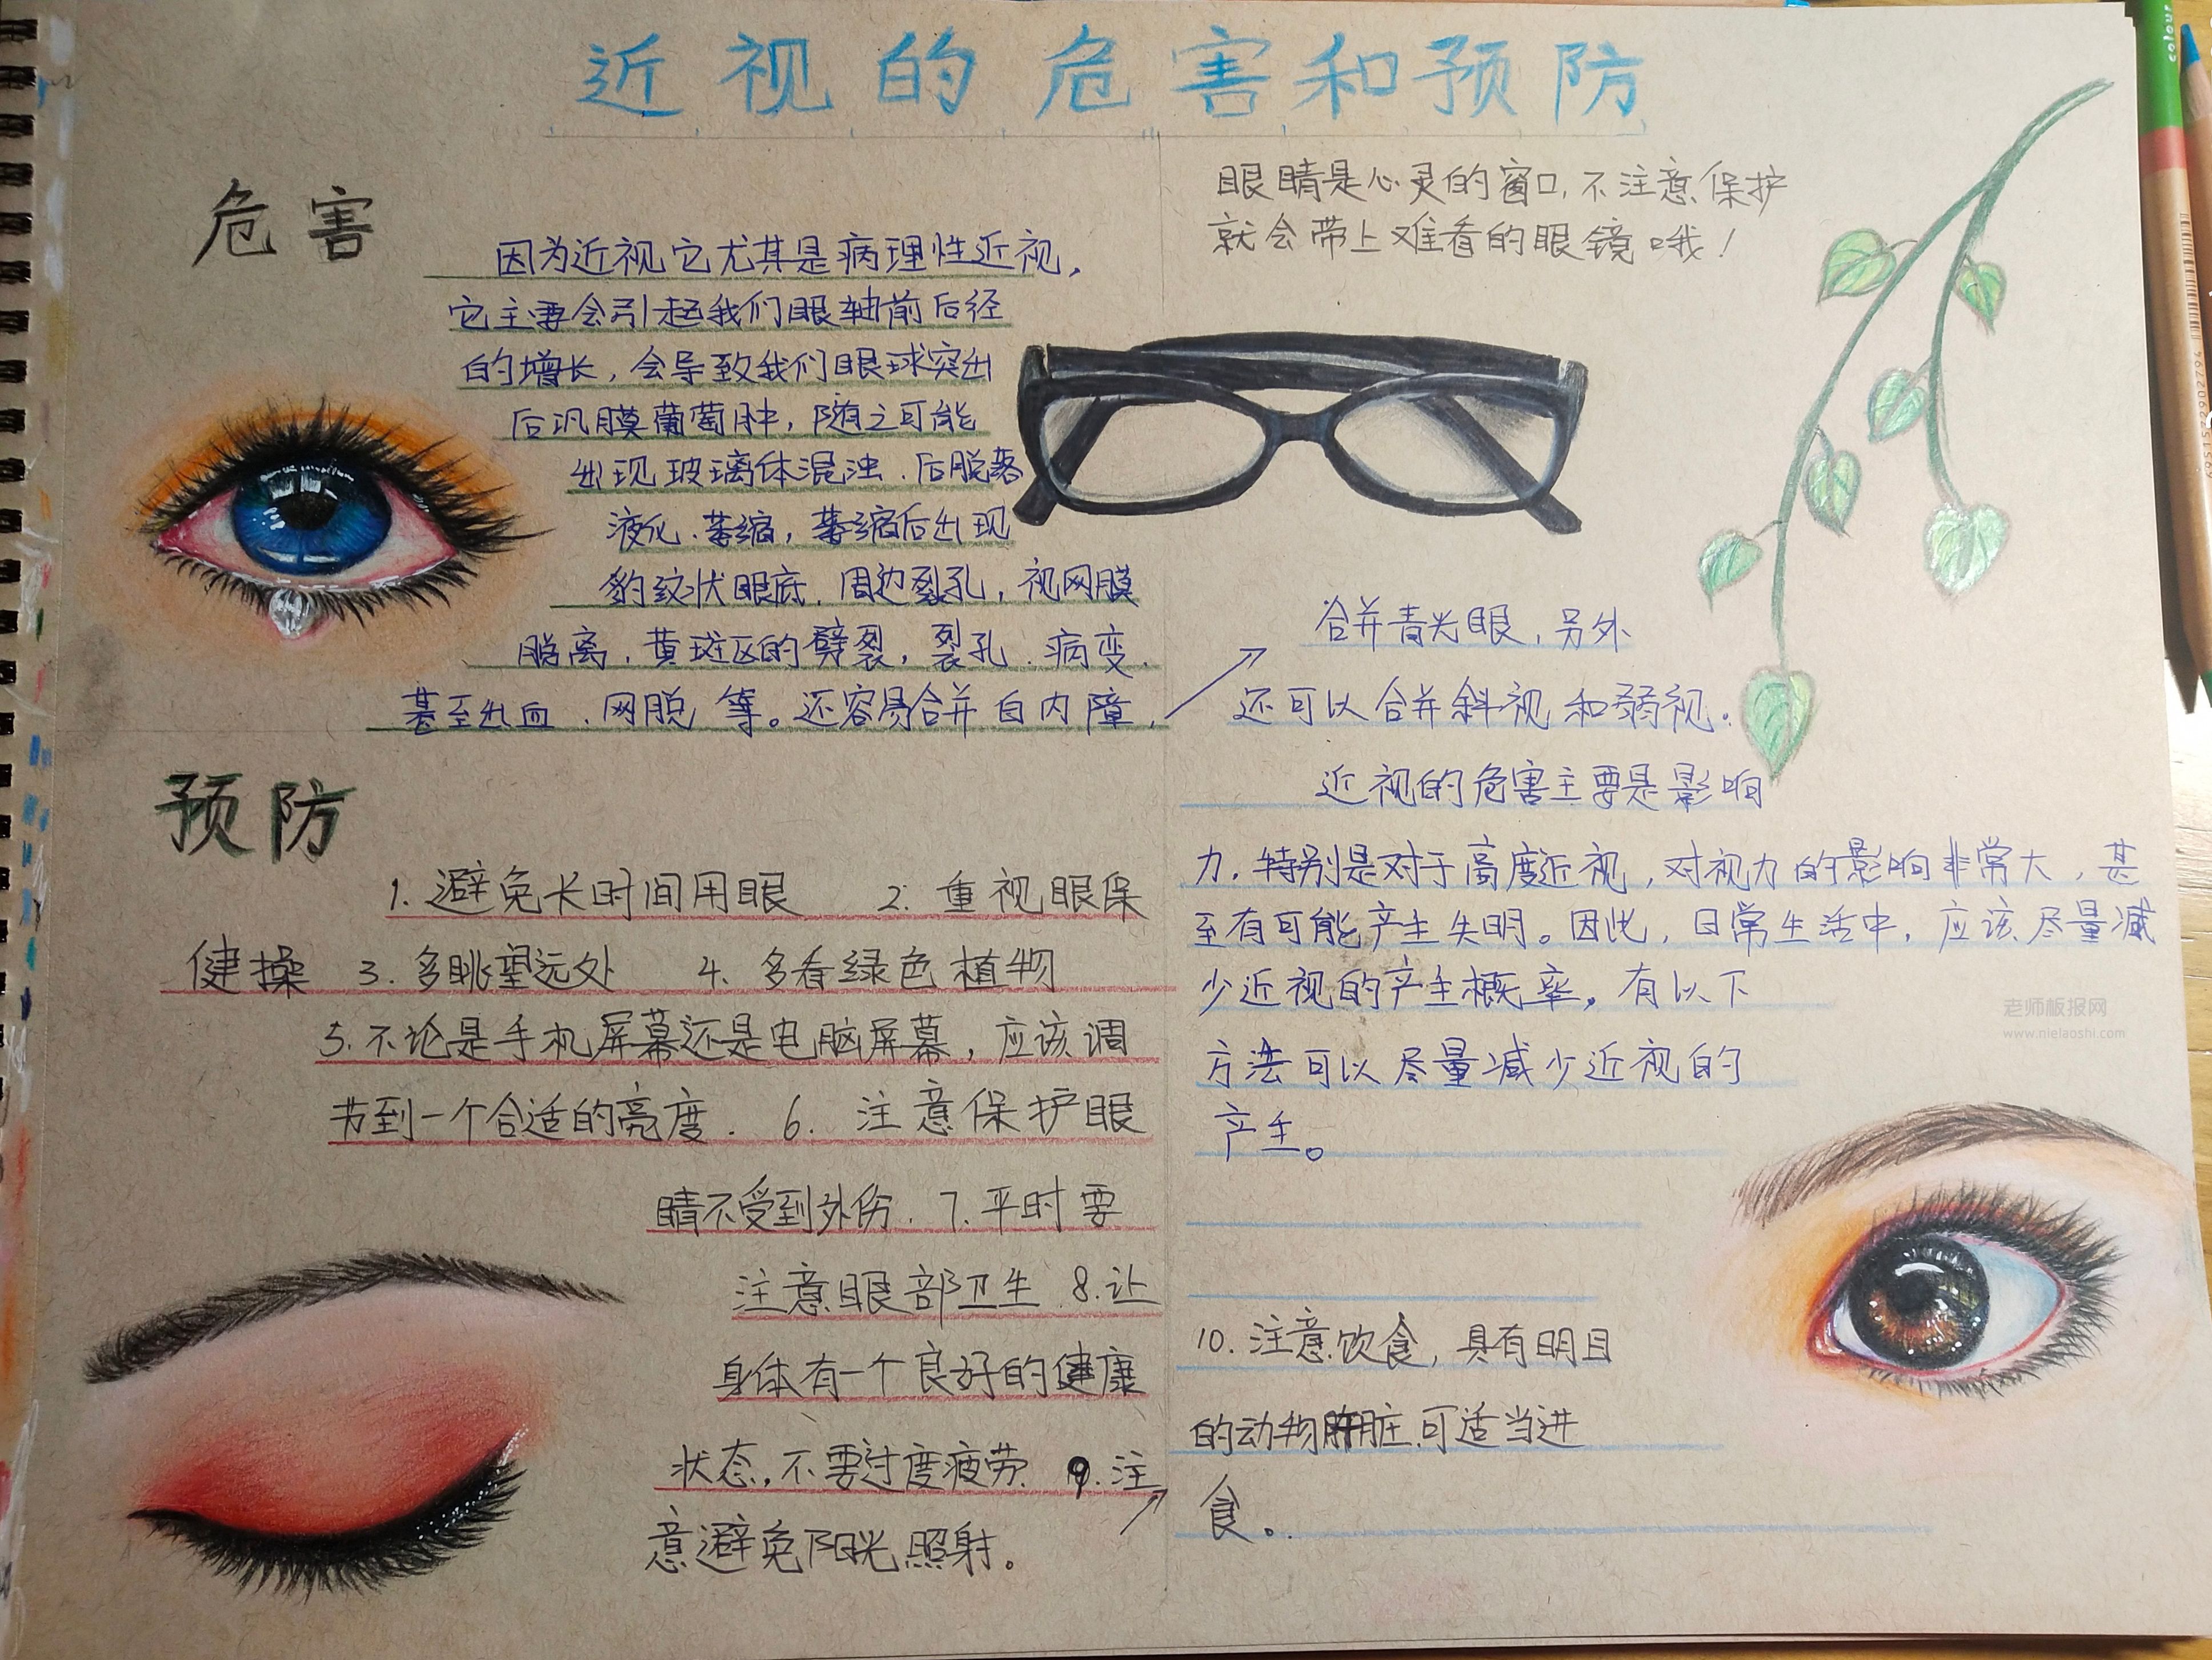 近视的危害和预防
危害
因为近视它尤其是病理性近视，
它主要会引起我们眼轴前后经
的增长，会导致我们眼球突出
后巩膜葡萄肿，随之可能
出现玻璃体混浊．后脱落
液化．萎缩，萎缩后出现
豹纹状眼底．周边裂孔，视网膜
脱离，黄斑区的劈裂，裂孔．病变．
甚至出血．网脱等。还容易合并白内障，
眼睛是心灵的窗口，不注意保护
就会带上难看的眼镜哦！
合并青光眼，另外
还可以合并斜视和弱视．
近视的危害主要是影响
力．特别是对于高度近视，对视力的影响非常大，甚
至有可能产生失明。因此，日常生活中，应该尽量减
少近视的产生概率。有以下
方法可以尽量减少近视的
产生。
预防
1. 避免长时间用眼 2. 重视眼保
健操 3. 多眺望远处 4. 多看绿色植物
5. 不论是手机屏幕还是电脑屏幕，应该调
节到一个合适的亮度． 6. 注意保护眼
睛不受到外伤． 7. 平时要
注意眼部卫生 8. 让
身体有一个良好的健康
状态，不要过度疲劳． 9. 注
意避免阳光照射。
10. 注意饮食，具有明目
的动物肝脏可适当进
食。
老师板报网
www.nielaoshi.com
colour